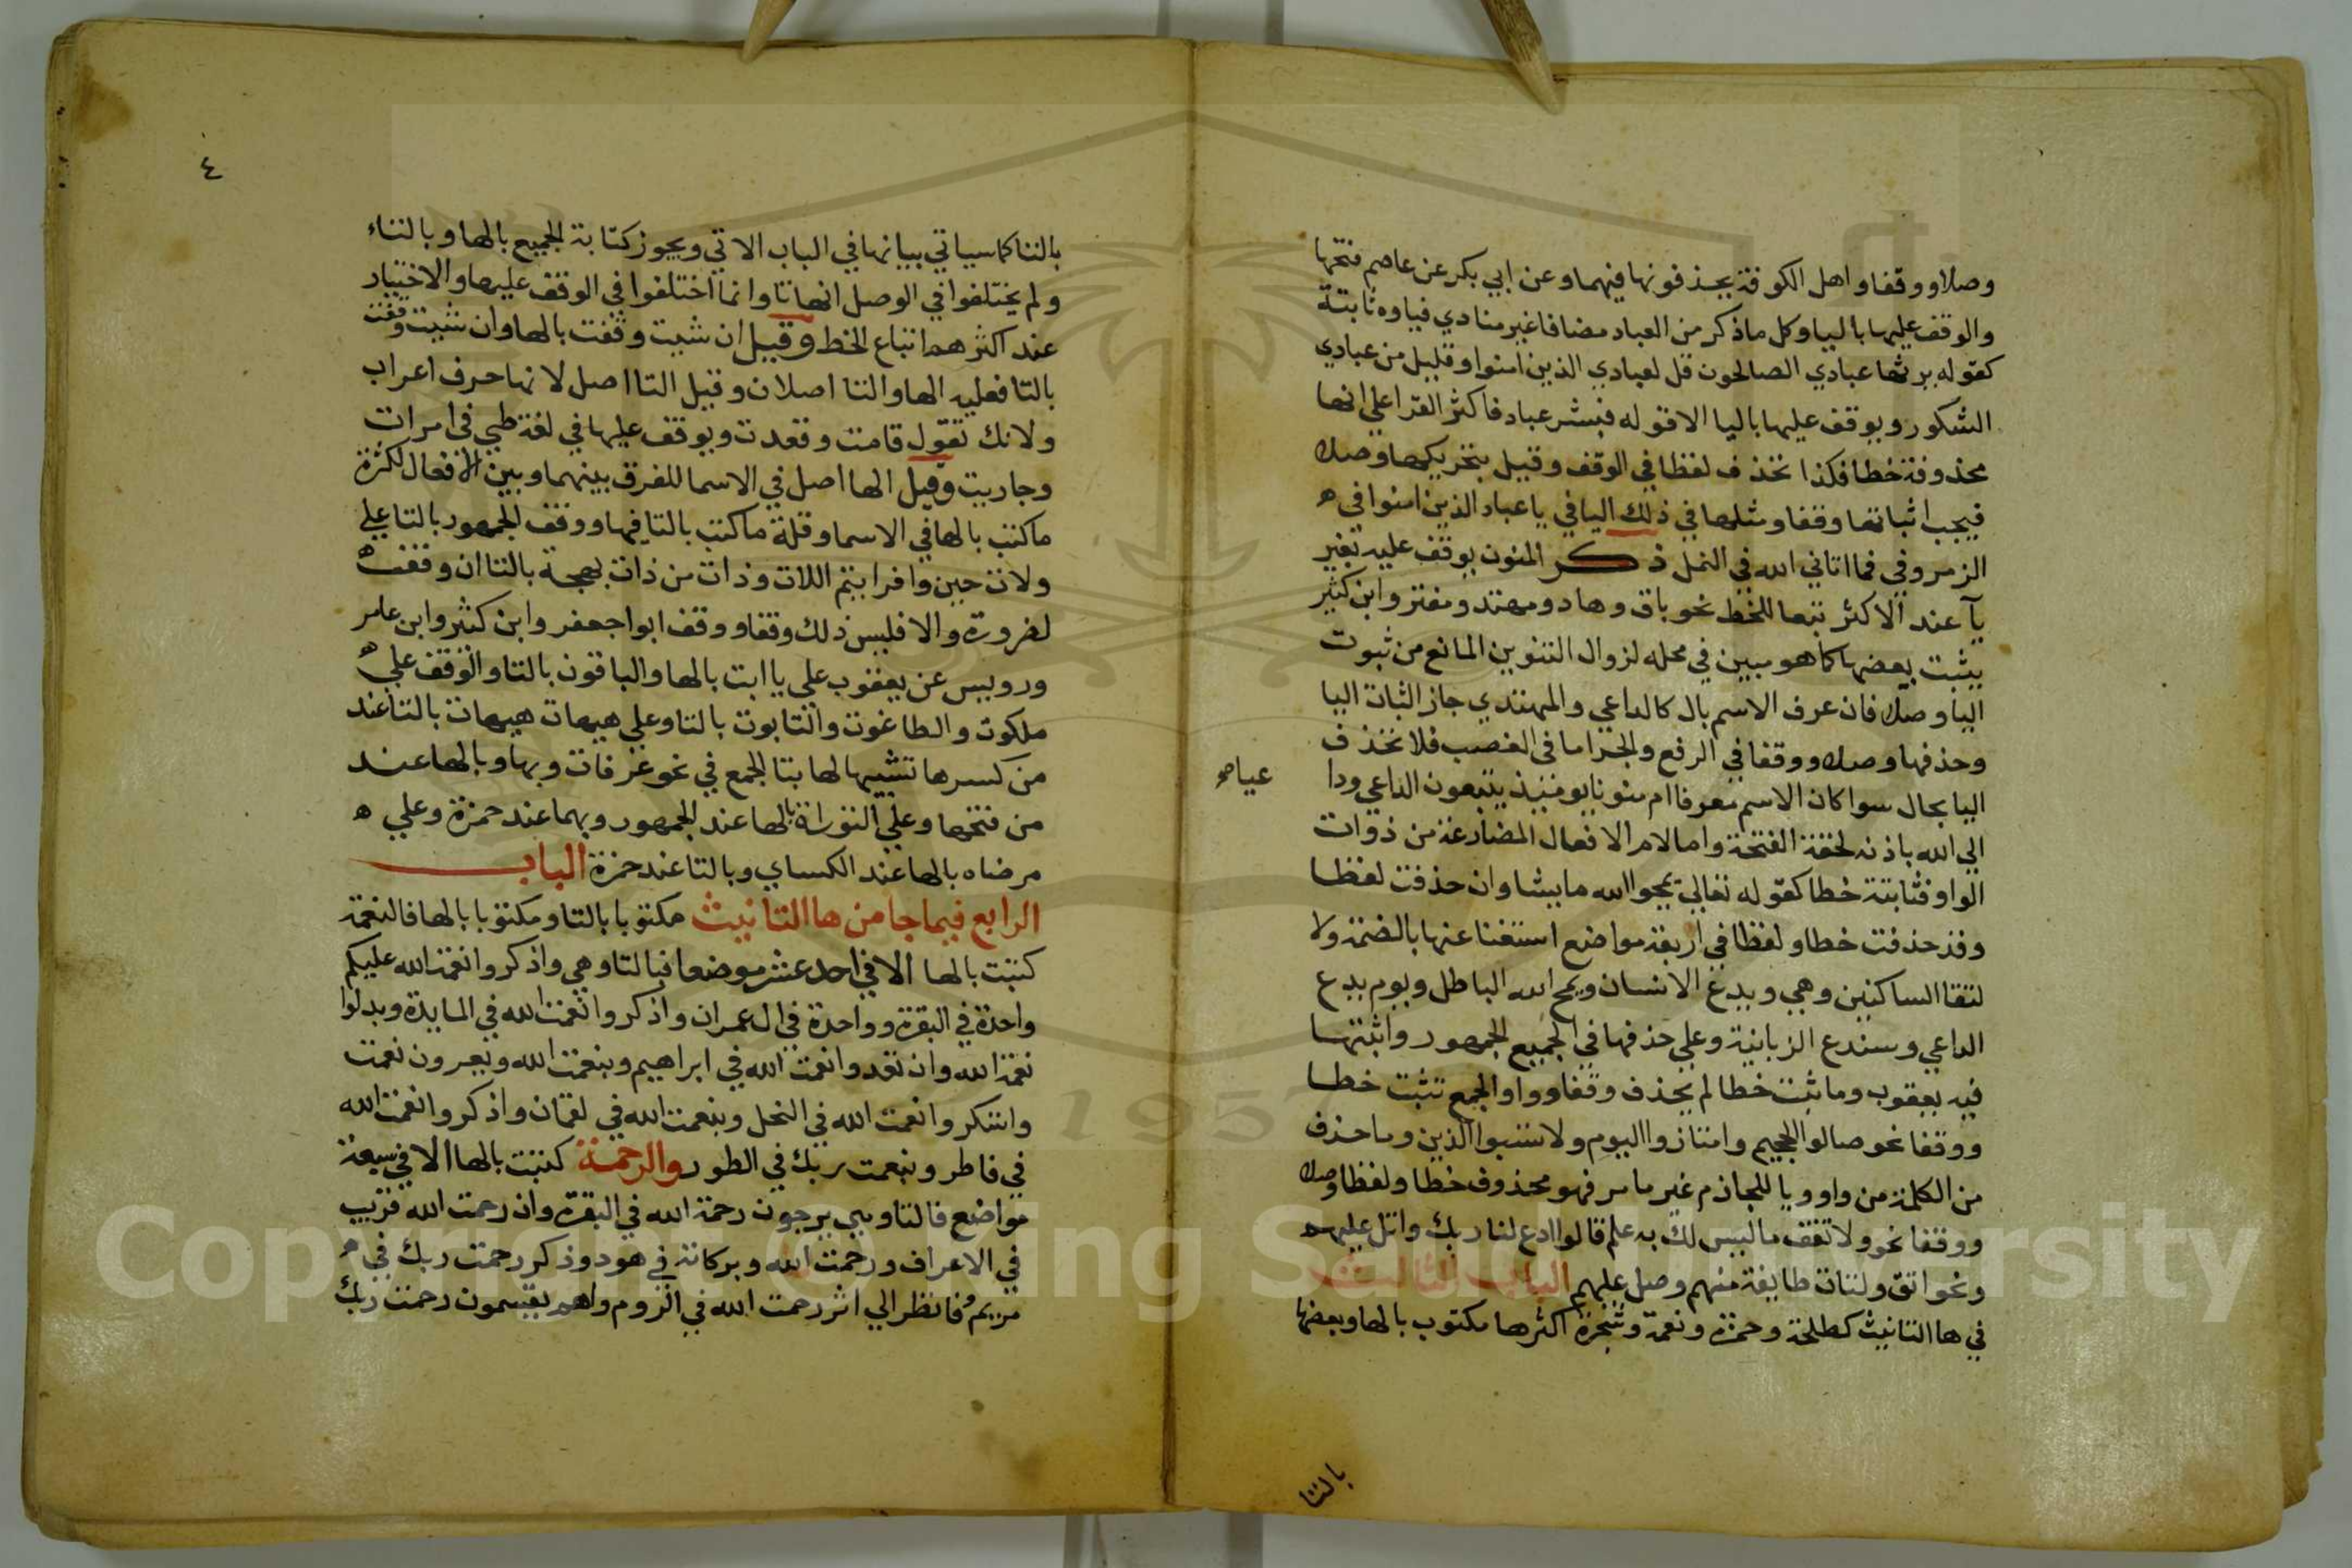 وصلا ووقفا واهل الكوفة يحذفونها فيهما وعن ابي بكر عن عاصم فتحها
والوقف عليها باليا وكل ما ذكر من العباد مضافا غير منادي فياوه ثابتة
كقوله يرثها عبادي الصالحون قل لعبادي الذين امنوا وقليل من عبادي
الشكور ويوقف عليها باليا الا قوله فبشر عباد فاكثر القرا علي انها
محذوفة خطا فكذا تحذف لفظا في الوقف وقيل بتحريكها وصلا
فيجب اثباتها وقفا ومثلها في ذلك اليا في يا عباد الذين امنوا في ه
الزمر وفي فما اتاني الله في النمل ذكر المنون يوقف عليه بغير
يآ عند الاكثر تبعا للخط نحو باق وهاد ومهتد ومفتر وابن كثير
يثبت بعضها كما هو مبين في محله لزوال التنوين المانع من ثبوت
اليا وصلا فان عرف الاسم بال كالداعي والمهتدي جاز اثبات اليا
وحذفها وصلا ووقفا في الرفع والجر اما في النصب فلا تحذف
اليا بحال سوا كان الاسم معرفا ام منونا يومئيذ يتبعون الداعي ودا عيا
الي الله باذنه لخفة الفتحة واما لام الافعال المضارعة من ذوات
الواو فثابتة خطا كقوله تعالي يمحوا الله ما يشا وان حذفت لفظا
وقد حذفت خطا ولفظا في اربعة مواضع استغنا عنها بالضمة ولا
لتقا الساكنين وهي ويدع الانسان ويمح الله الباطل ويوم يدع
الداعي وسندع الزبانية وعلي حذفها في الجميع الجمهور واثبتها
فيه يعقوب وما ثبت خطا لم يحذف وقفا وواو الجمع تثبت خطا
ووقفا نحو صالوا الجحيم وامتازوا اليوم ولا تسبوا الذين وما حذف
من الكلمة من واو ويا للجازم غير ما مر فهو محذوف خطا ولفظا وصلا
ووقفا نحو ولا تقف ما ليس لك به علم قالوا ادع لنا ربك واتل عليهم
ونحو اتق ولتات طايفة منهم وصل عليهم الباب الثالث
في ها التانيث كطلحة وحمزة ونعمة وشجرة اكثرها مكتوب بالها وبعضها
بالتا
٤
بالتا كما سياتي بيانها في الباب الاتي ويجوز كتابة الجميع بالها وبالتاء
ولم يختلفوا في الوصل انها تا وانما اختلفوا في الوقف عليها والاختيار
عند اكثرهم اتباع الخط وقيل ان شيت وقفت بالها وان شيت وقفت
بالتا فعليه الها والتا اصلان وقيل التا اصل لانها حرف اعراب
ولانك تقول قامت وقعدت ويوقف عليها في لغة طي في امرات
وجاريت وقيل الها اصل في الاسما للفرق بينهما وبين الافعال لكثرة
ما كتب بالها في الاسما وقلة ما كتب بالتا فيها ووقف الجمهور بالتا علي
ولات حين وافرايتم اللات وذات من ذات بهجة بالتا ان وقفت ه
لضرورة والا فليس ذلك وقفا ووقف ابوا جعفر وابن كثير وابن عامر
ورويس عن يعقوب علي يا ابت بالها والباقون بالتا والوقف علي ه
ملكوت والطاغوت والتابوت بالتا وعلي هيهات هيهات بالتا عند
من كسرها تشبيها لها بتا الجمع في نحو غرفات وبها وبالها عند
من فتحها وعلي التوراة بالها عند الجمهور وبهما عند حمزة وعلي ه
مرضاه بالها عند الكساي وبالتا عند حمزة الباب
الرابع فيما جا من ها التانيث مكتوبا بالتا ومكتوبا بالها فالنعمة
كتبت بالها الا في احد عشر موضعا فبالتا وهي واذكروا نعمت الله عليكم
واحدة في البقرة وواحدة في ال عمران واذكروا نعمت الله في المايدة وبدلوا
نعمة الله وان تعدوا نعمت الله في ابراهيم وبنعمت الله ويعرفون نعمت
واشكروا نعمت الله في النحل وبنعمت الله في لقمان واذكروا نعمت الله
في فاطر وبنعمت ربك في الطور والرحمة كتبت بالها الا في سبعة
مواضع فالتا وهي يرجون رحمة الله في البقرة وان رحمت الله قريب
في الاعراف ورحمت الله وبركاته في هود وذكر رحمت ربك في
مريم وفانظر الي اثر رحمت الله في الروم واهم يقسمون رحمت ربك
Copyright © King Saud University
1957